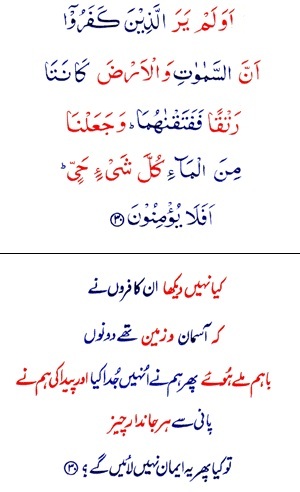 اَوَلَمْ يَرَ الَّذِيْنَ كَفَرُوْۤا
اَنَّ السَّمٰوٰتِ وَالْاَرْضَ كَانَتَا
رَتْقًا فَفَتَقْنٰهُمَا ؕ وَجَعَلْنَا
مِنَ الْمَآءِ كُلَّ شَىْءٍ حَىٍّ ؕ
اَفَلَا يُؤْمِنُوْنَ ﴿۳۰﴾
کیا نہیں دیکھا ان کافروں نے
کہ آسمان و زمین تھے دونوں
باہم ملے ہُوئے پھر ہم نے اُنہیں جُدا کیا اور پیدا کی ہم نے
پانی سے ہر جاندار چیز
تو کیا پھر یہ ایمان نہیں لائیں گے؟ ﴿۳۰﴾